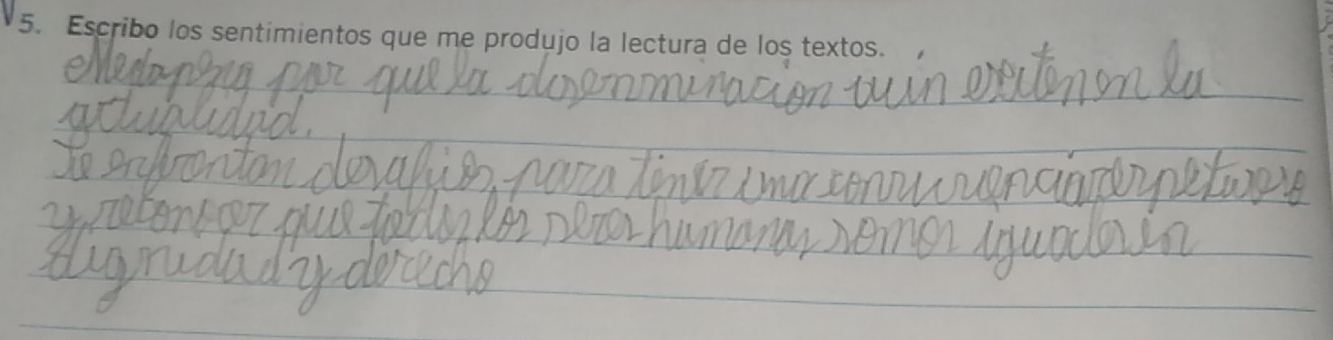 5. Escribo los sentimientos que me produjo la lectura de los textos.
Me da pena por que la discriminacion aun existen en la
actualidad.
Se enfrentan desafios, para tener una convivencia respetuosa
y reconocer que todos los seres humanos somos iguales en
dignidad y derecho